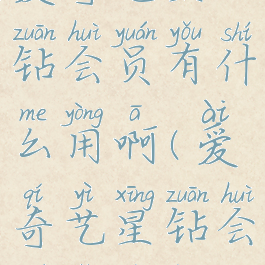 zuān huì yuán yǒu shí
钻会员有什
me yòng ā ài
么用啊(爱
qí yì xīng zuān huì
奇艺星钻会